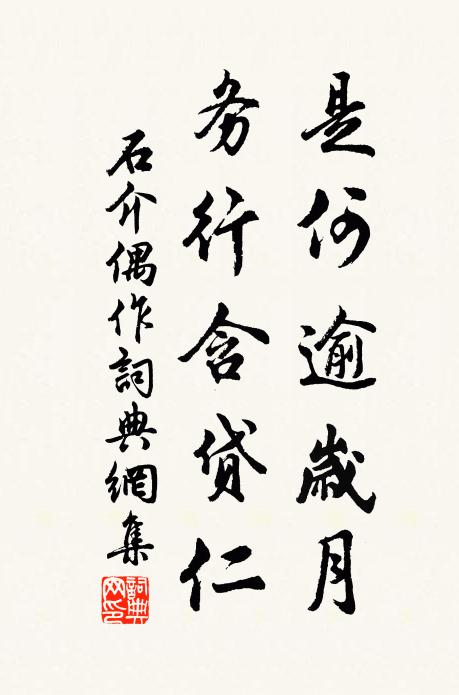 是何逾歲月
务行含貸仁
石介偶作詞典網集
詞典网印